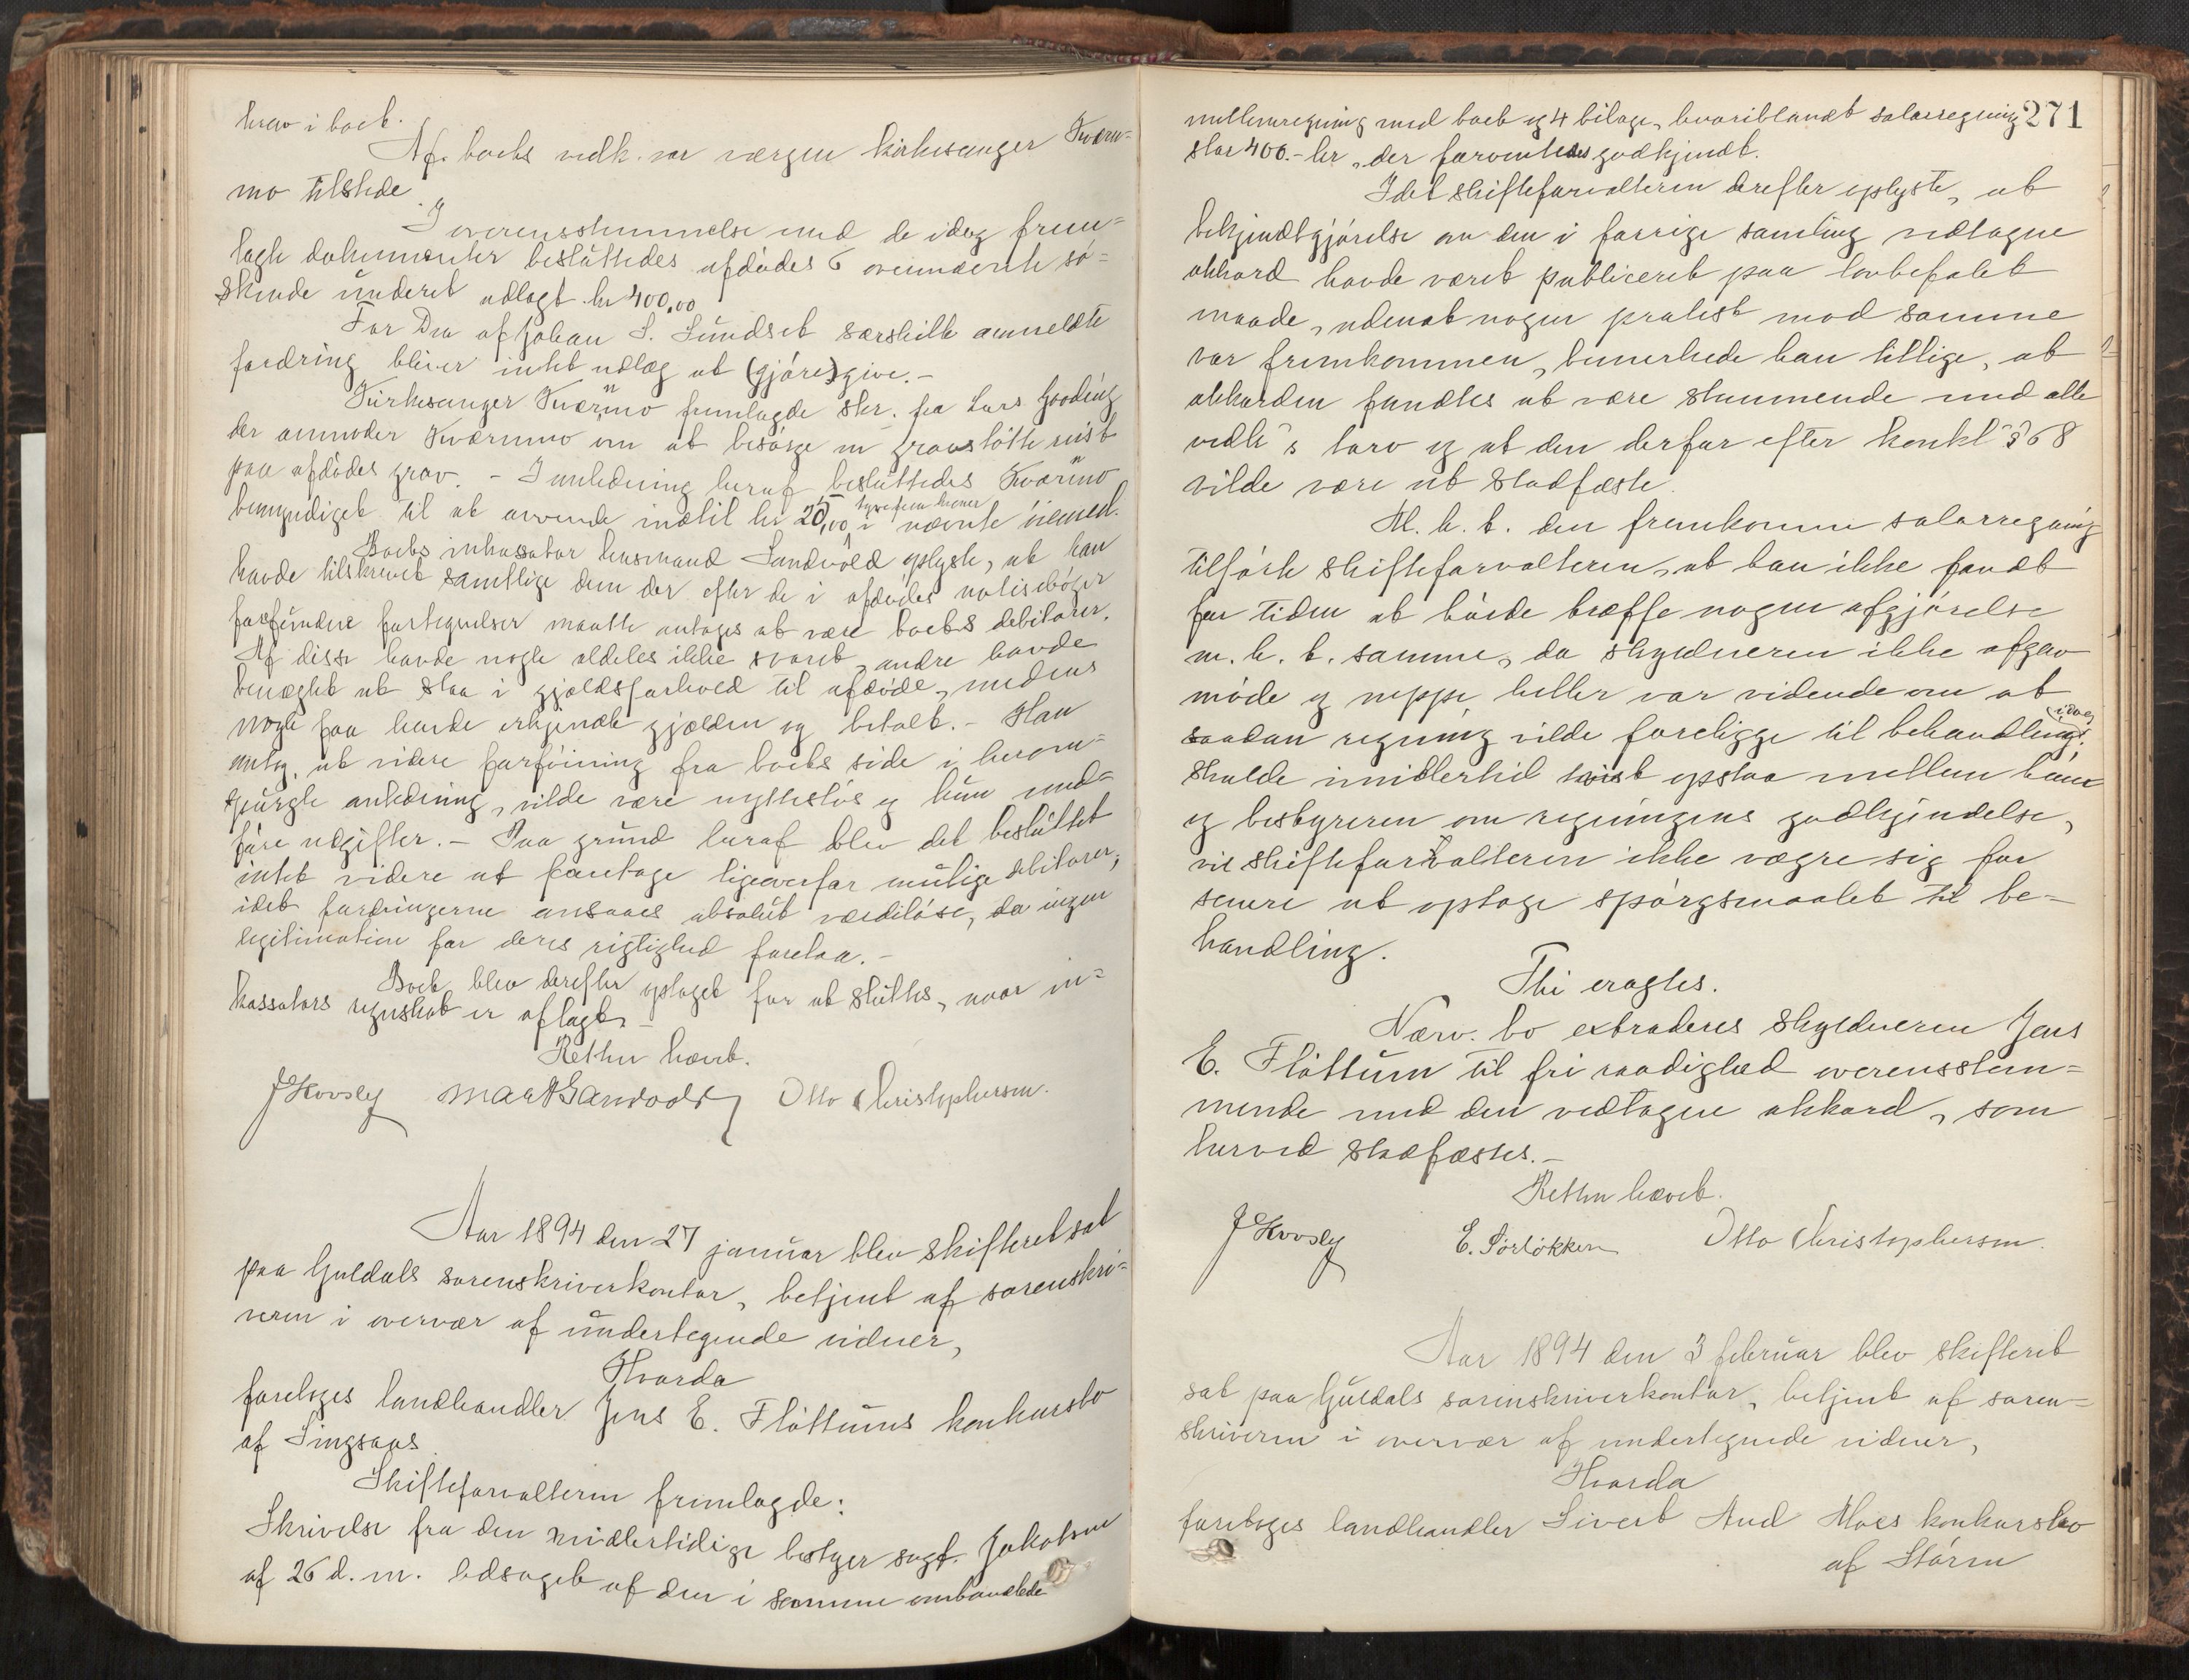 krav i boet.
Af boets vedk. var værgen kirkesanger Kværn=
mo tilstede.
I overensstemmelse med de idag frem=
lagte dokumenter besluttedes afdødes 6 ovennævnte sø=
skende underet udlagt kr 400,00
For Dra af Johan S. Lundset særskilt anmeldte
fordring bliver intet udlæg at (gjøre) give.–
Kirkesanger Kværnmo fremlagde skr. fra Lars Gooding
der anmoder Kværnmo om at besørge en gravstøtte reist
paa afdødes grav. – I anledning heraf besluttedes Kværnmo
bemyndiget til at anvende indtil kr 25,00 tyvefem kroner i nævnte øiemed.
Boets inkassator lensmand Sandvold oplyste, at han
havde tilskrevet samtlige dem der efter de i afdødes notisbøger
forefundne fortegnelser maatte antages at være boets debitorer.
Af disse havde nogle aldeles ikke svaret, andre havde
benægtet at staa i gjældsforhold til afdøde, medens
nogle faa havde erkjendt gjælden og betalt. – Han
antog, at videre forføining fra boets side i herom=
spurgte anledning, vilde være nytteløs og kun med=
føre udgifter. – Paa grund heraf blev det besluttet
intet videre at foretage ligeoverfor mulige debitorer,
idet fordringerne ansaaes absolut værdiløse, da ingen
legitimation for deres rigtighed forelaa. –
Boet blev derefter optaget for at sluttes, naar in=
kassators regnskab er aflagt. –
Retten hævet.
J Hovsley MartSandvold Otto Christophersen.
Aar 1894 den 27 januar blev skifteret sat
paa Guldals sorenskriverkontor, betjent af sorenskri=
veren i overvær af undertegnede vidner,
Hvorda
foretoges landhandler Jens E. Fløttums konkursbo
af Singsaas.
Skifteforvalteren fremlagde:
Skrivelse fra den midlertidige bestyrer sagf. Jakobsen
af 26 d. m. ledsaget af den i samme omhandlede
271
mellemregning med boet og 4 bilage, hvoriblandt salærregning
stor 400.- kr, der forventedes godkjendt.
Idet skifteforvalteren derefter oplyste, at
bekjendtgjørelse om den i forrige samling vedtagne
akkord havde været publiceret paa lovbefalet
maade, udenat nogen protest mod samme
var fremkommen, bemerkede han tillige, at
akkorden fandtes at være stemmende med alle
vedk's tarv og at den derfor efter konkl § 68
vilde være at stadfæste.
M. h. t. den fremkomne salærregning
tilførte skifteforvalteren, at han ikke fandt
for tiden at burde træffe nogen afgjørelse
m. h. t. samme, da skyldneren ikke afgav
møde og neppe heller var vidende om at
saadan regning vilde foreligge til behandling idag.
Skulde imidlertid tvist opstaa mellem ham
og bestyreren om regningens godkjendelse,
vil skifteforvalteren ikke vægre sig for
senere at optage spørgsmaalet til be=
handling.
Thi eragtes.
Nærv. bo extraderes skyldneren Jens
E. Fløttum til fri raadighed overensstem=
mende med den vedtagne akkord, som
herved stadfæstes. –
Retten hævet.
J Hovsley E. Sørløkken Otto Christophersen.
Aar 1894 den 3 februar blev skifteret
sat paa Guldals sorenskriverkontor, betjent af soren=
skriveren i overvær af undertegnede vidner,
Hvorda
foretoges landhandler Sivert And Moes konkursbo
af Støren